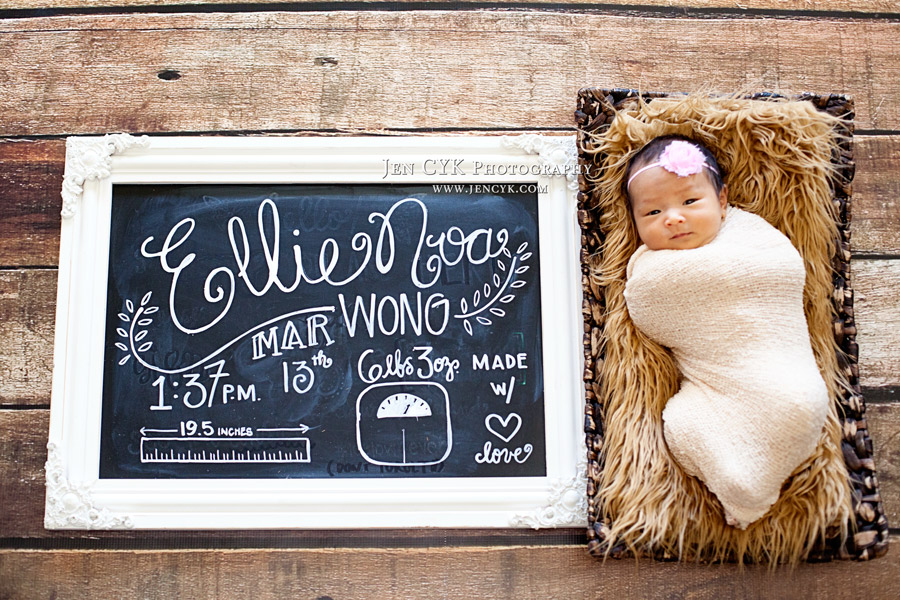 JEN CYK PHOTOGRAPHY
WWW.JENCYK.COM
Ellie Noa
WONG
MAR
13th
1:37 P.M.
6lbs 3oz.
MADE
W/
love
19.5 INCHES